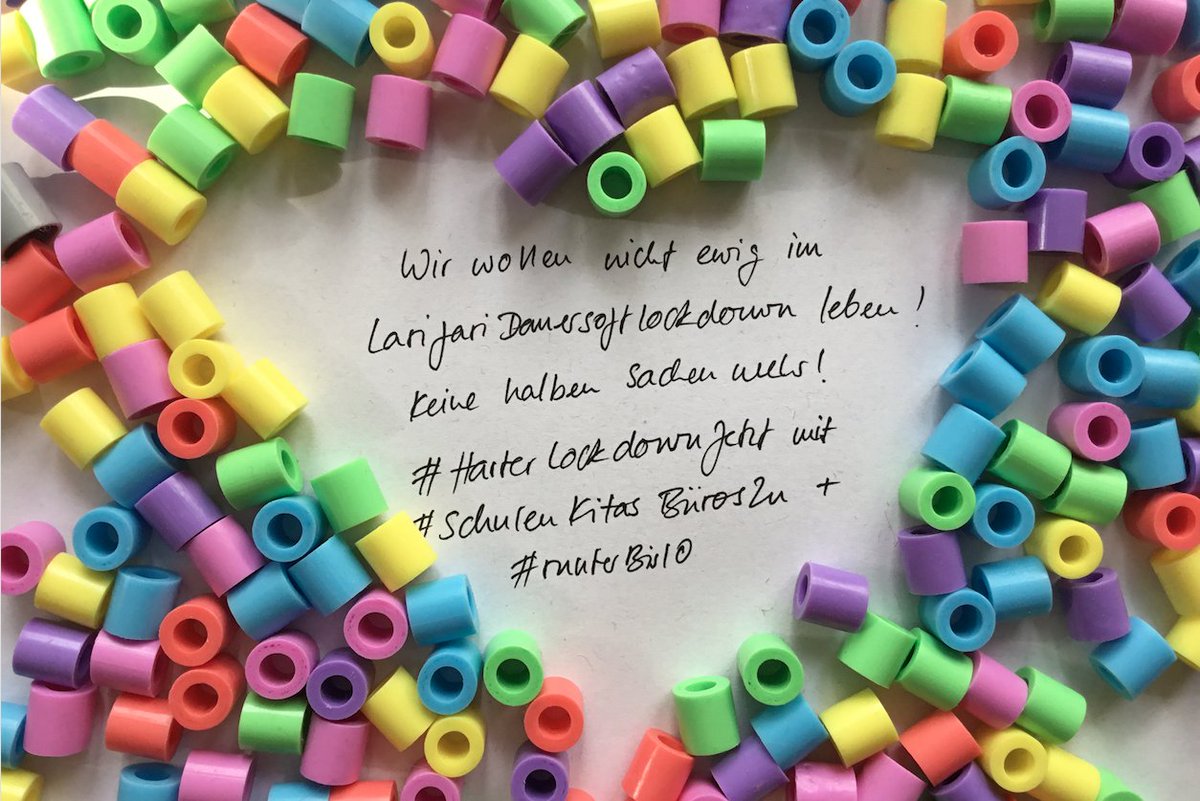 Wir wollen nicht ewig im
LarifariDauersoftlockdown leben!
Keine halben Sachen mehr!
#HarterLockdownJetzt mit
#SchulenKitasBürosZu +
#runterBis10